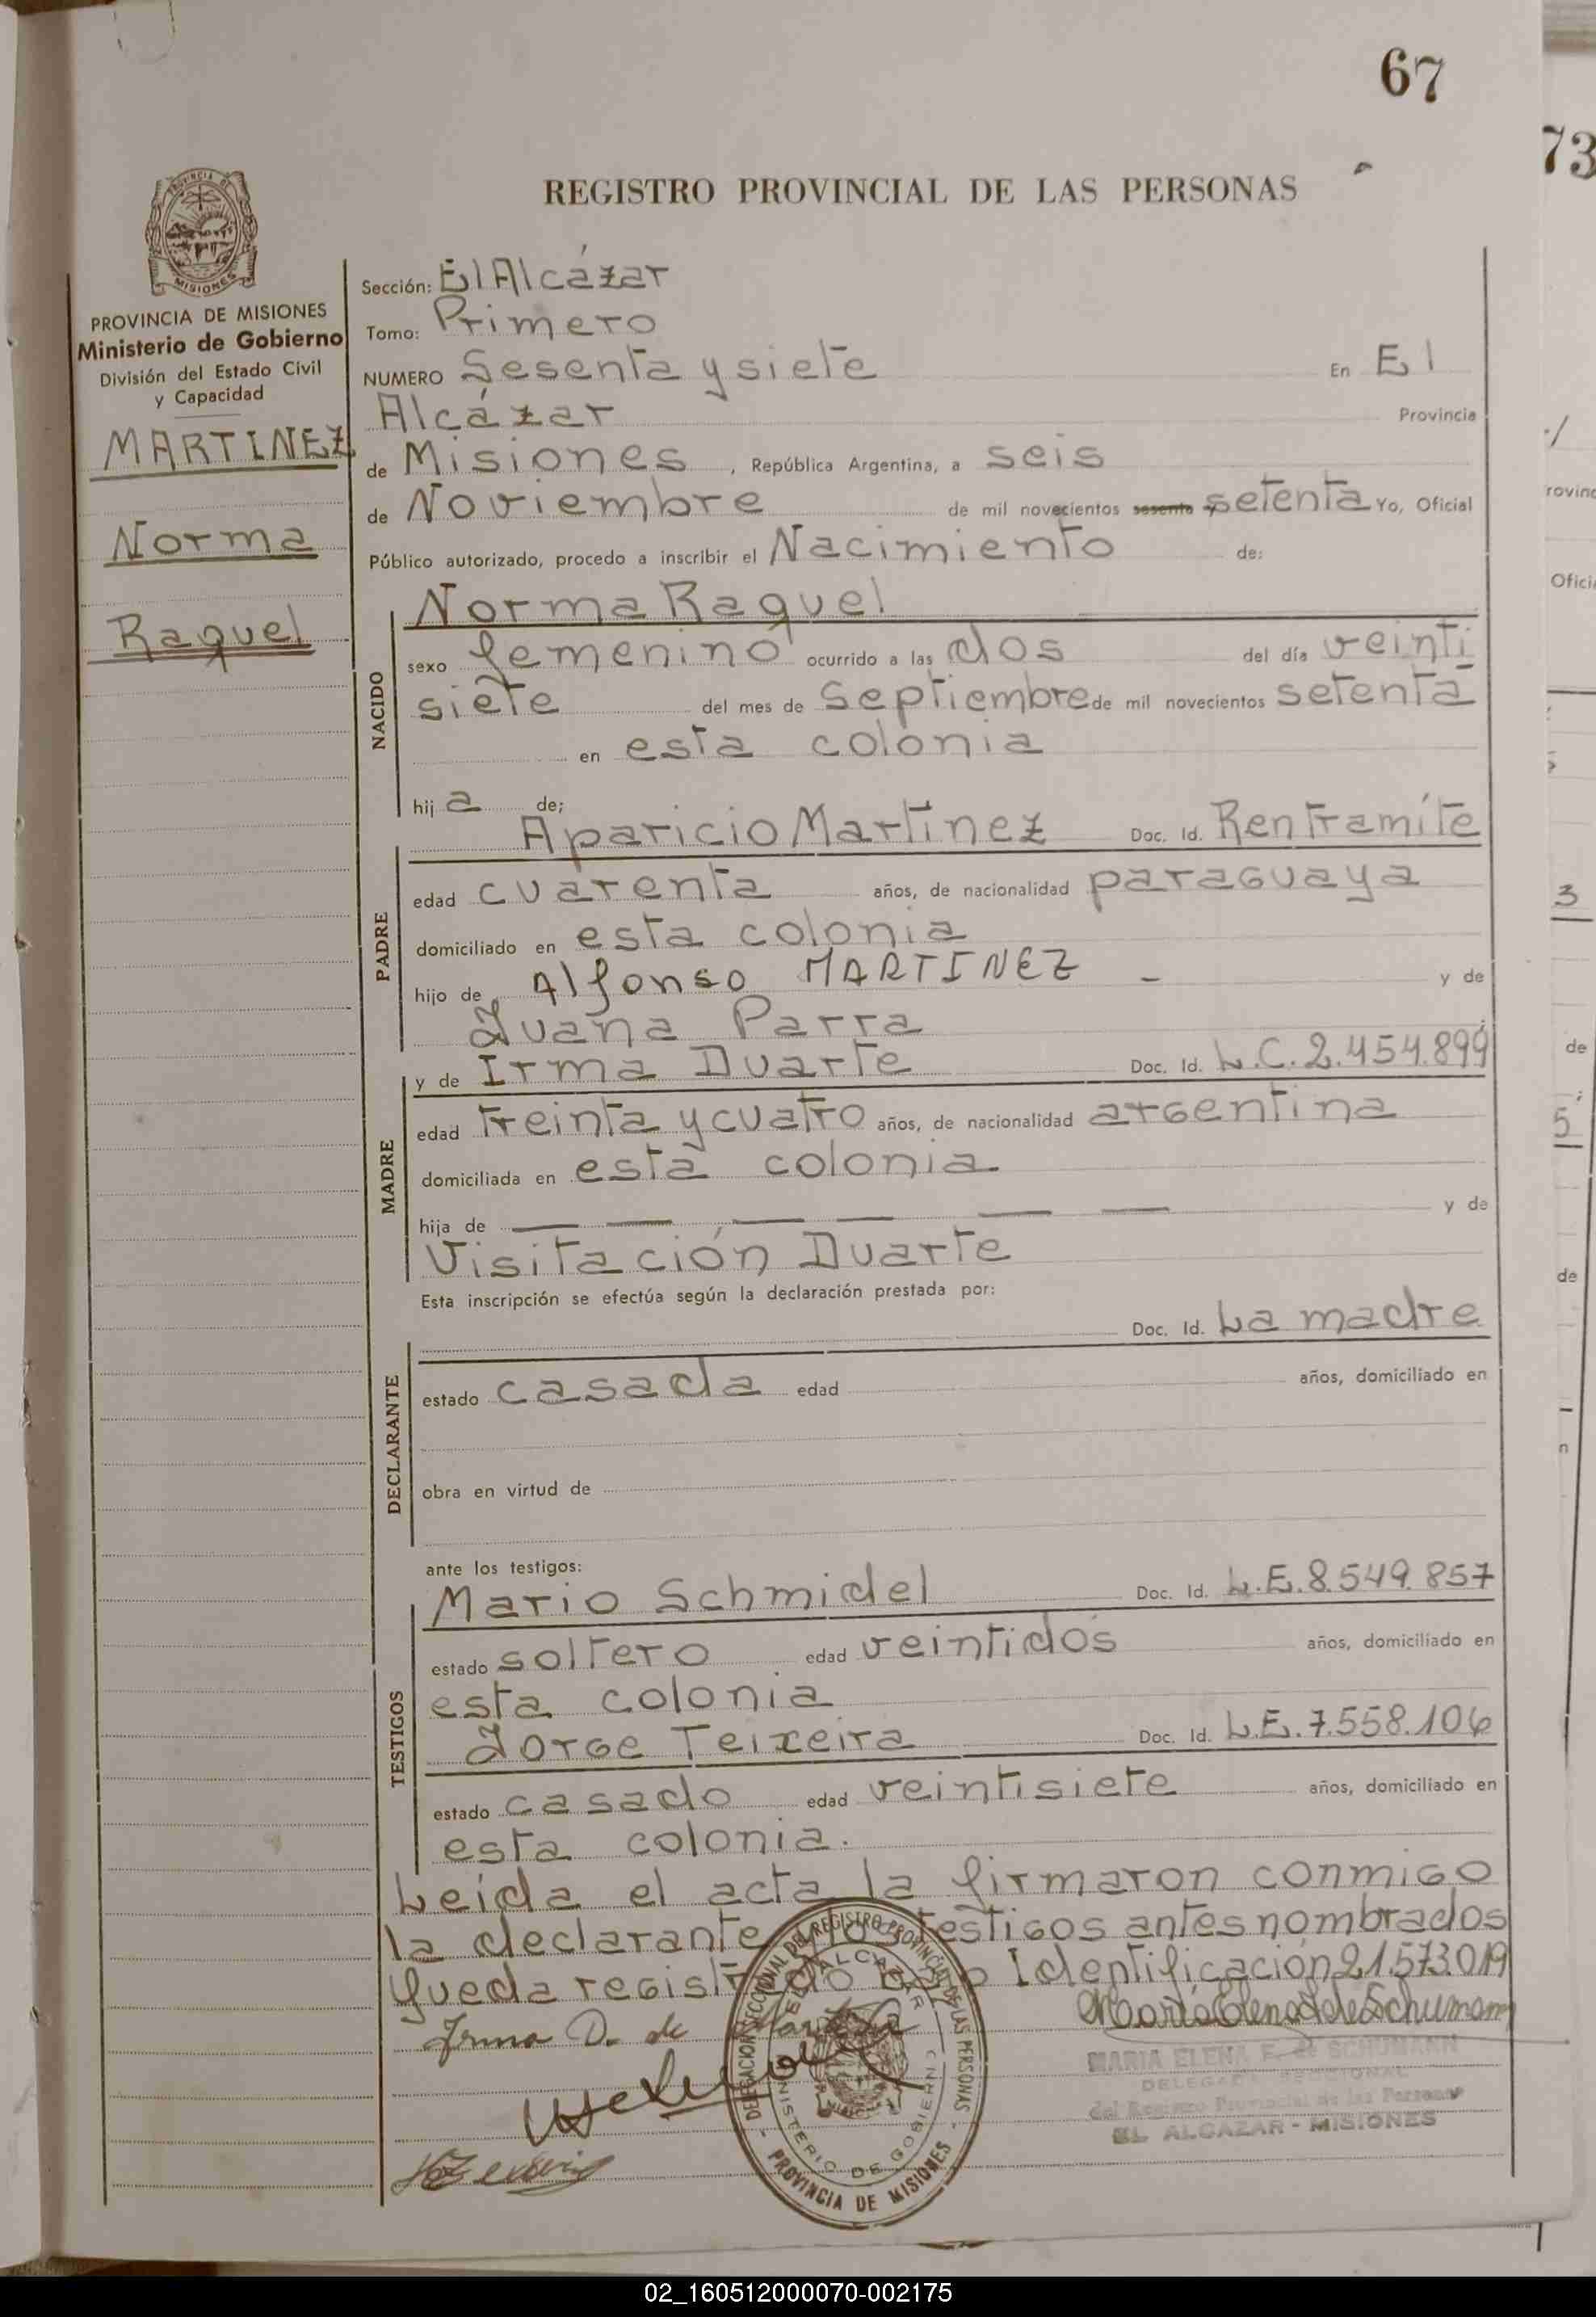 67
73
REGISTRO PROVINCIAL DE LAS PERSONAS
PROVINCIA DE
MISIONES
PROVINCIA DE MISIONES
Ministerio de Gobierno
División del Estado Civil
y Capacidad
MARTINEZ
Norma
Raquel
Sección: El Alcázar
Tomo: Primero
NUMERO Sesenta y siete En El
Alcázar Provincia
de Misiones, República Argentina, a seis
de Noviembre de mil novecientos sesenta setenta Yo, Oficial
Público autorizado, procedo a inscribir el Nacimiento de:
NACIDO
Norma Raquel
sexo femenino ocurrido a las dos del día veinti
siete del mes de Septiembre de mil novecientos setenta
en esta colonia
hij a de;
PADRE
Aparicio Martínez Doc. Id. R en tramite
edad cuarenta años, de nacionalidad paraguaya
domiciliado en esta colonia
hijo de Alfonso MARTINEZ - y de
Juana Parra
MADRE
y de Irma Duarte Doc. Id. L.C. 2.454.899
edad treinta y cuatro años, de nacionalidad argentina
domiciliada en esta colonia
hija de — — — — — — y de
Visitación Duarte
Esta inscripción se efectúa según la declaración prestada por:
DECLARANTE
Doc. Id. La madre
estado casada edad años, domiciliado en
obra en virtud de
ante los testigos:
TESTIGOS
Mario Schmidel Doc. Id. L.E. 8.549.857
estado soltero edad veintidos años, domiciliado en
esta colonia
Jorge Teixeira Doc. Id. L.E. 7.558.106
estado casado edad veintisiete años, domiciliado en
esta colonia.
Leida el acta la firmaron conmigo
la declarante y los testigos antes nombrados
Queda registrado bajo Identificación 21.573.019
Irma D. de Martinez
María Elena F. de Schumann
MARIA ELENA F. de SCHUMANN
DELEGADA SECCIONAL
del Registro Provincial de las Personas
EL ALCAZAR - MISIONES
DELEGACION SECCIONAL DEL REGISTRO PROVINCIAL DE LAS PERSONAS
EL ALCAZAR
MINISTERIO DE GOBIERNO
PROVINCIA DE MISIONES
02_160512000070-002175